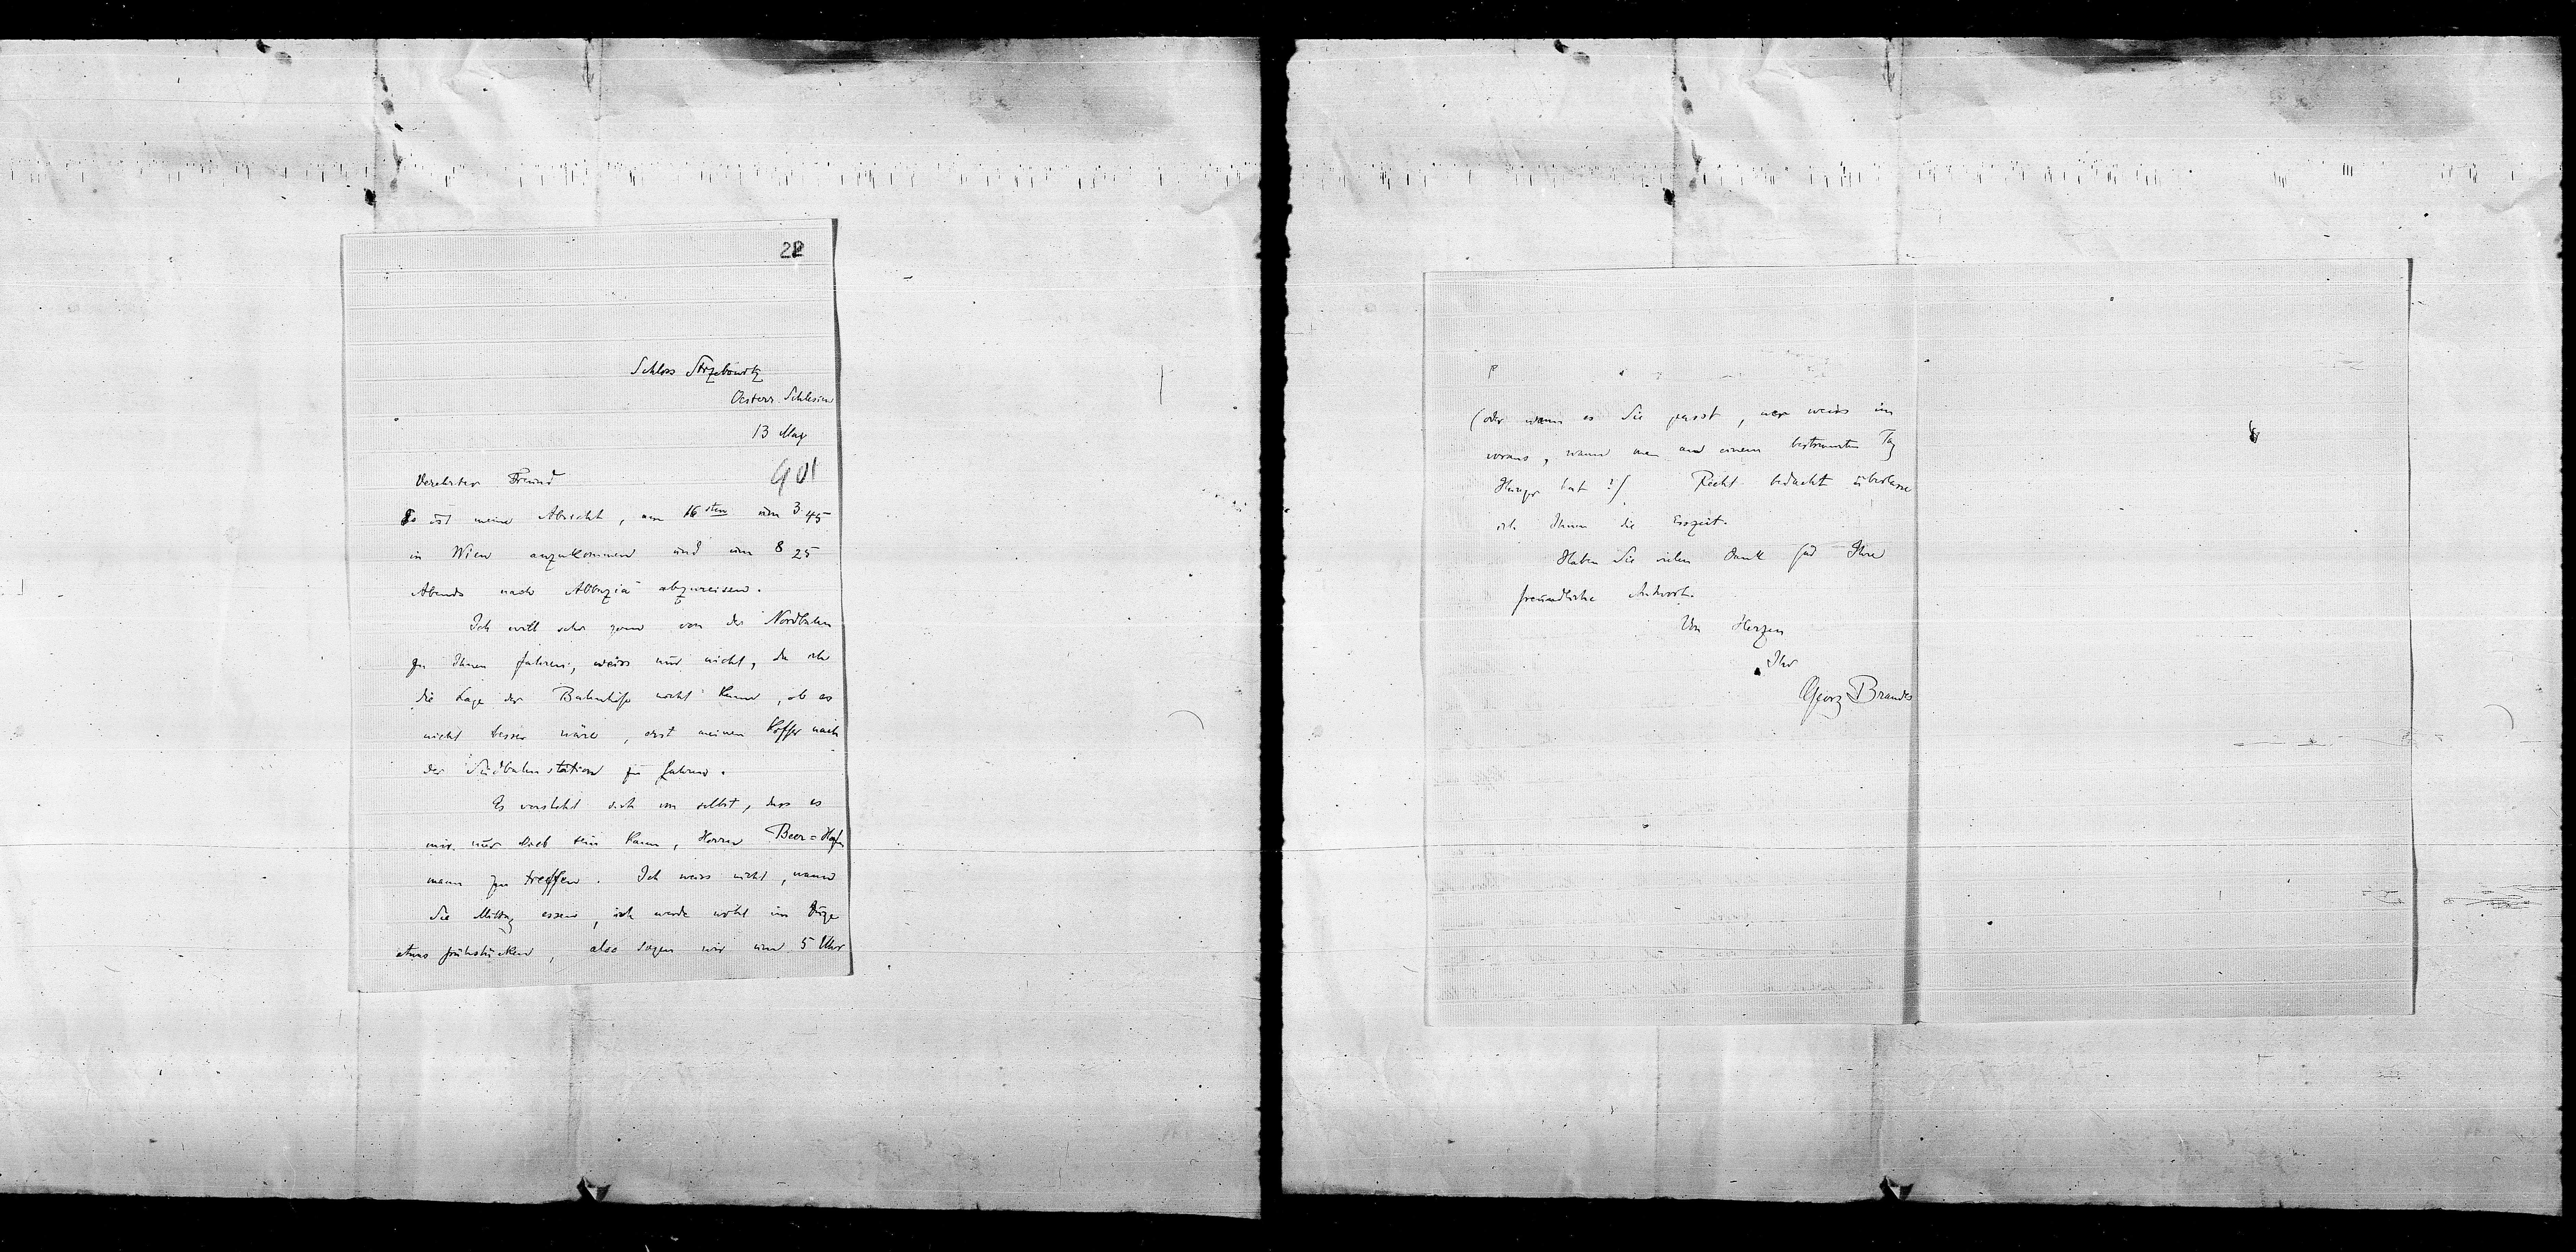 22
Schloss Strzebowitz
Oesterr. Schlesien
13 May
901
Verehrter Freund
Es ist meine Absicht, am 16sten um 3.45
in Wien anzukommen und um 8 25
Abends nach Abbazia abzureisen.
Ich will sehr gerne von der Nordbahn
zu Ihnen fahren, weiss nur nicht, da ich
die Lage der Bahnhöfe nicht kenne, ob es
nicht besser wäre, erst meinen Koffer nach
der Südbahnstation zu fahren.
Es versteht sich von selbst, dass es
mir nur lieb sein kann, Herrn Beer=Hof
mann zu treffen. Ich weiss nicht, wann
Sie Mittag essen, ich werde wohl im Zuge
etwas frühstücken, also sagen wir um 5 Uhr
(oder wann es Sie passt, wer weiss im
voraus, wann man an einem bestimmten Tag
Hunger hat?/ Recht bedacht überlasse
ich Ihnen die Esszeit.
Haben Sie vielen Dank für Ihre
freundliche Antwort.
Von Herzen
Ihr
Georg Brandes